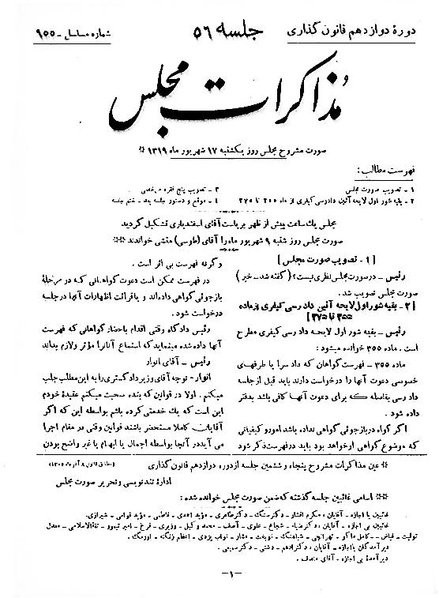 دورهٔ دوازدهم قانون گذاری
جلسه ۵۶
شماره مسلسل - ۹۵۵
مذاکرات مجلس
صورت مشروح مجلس روز یکشنبه ۱۷ شهریور ماه ۱۳۱۹
فهرست مطالب:
۱ - تصویب صورت مجلس
۲ - بقیه شور اول لایحه آئین دادرسی کیفری از ماده ۲۵۵ تا ۲۷۵
۳ - تصویب پنج فقره مرخصی
۴ - موقع و دستور جلسه بعد - ختم جلسه
مجلس یک ساعت پیش از ظهر بریاست آقای اسفندیاری تشکیل گردید
صورت مجلس روز شنبه ۹ شهریور ماه را آقای (طوسی) منشی خواندند
[ ۱ - تصویب صورت مجلس ]
رئیس - در صورت مجلس نظری نیست؟ (گفته شد - خیر)
صورت مجلس تصویب شد.
[ ۲ - بقیه شور اول لایحه آئین دادرسی کیفری از ماده
رئیس - بقیه شور اول لایحه دادرسی کیفری مطرح
است. ماده ۳۵۵ خوانده میشود:
ماده ۳۵۵ - فهرست گواهان که دادسرا یا طرفهای
خصوصی دعوت آنها را درخواست دارند باید قبل از جلسه
دادرسی بفاصله که برای دعوت آنها کافی باشد بدفتر
داده شود.
اگر گواه در بازجوئی گواهی نداده باشد امور و کیفیاتی
که موضوع گواهی او خواهد بود باید در فهرست ذکر شود
وگرنه فهرست بی اثر است.
در فهرست ممکن است دعوت گواهانی که در مرحلهٔ
بازجوئی گواهی داده‌اند و یا قرائت اظهارات آنها در جلسه
درخواست شود.
رئیس دادگاه وقتی اقدام باحضار گواهانی که فهرست
آنها داده شده مینماید که استماع آنها را مؤثر و لازم بداند
رئیس - آقای انوار
انوار - توجه آقای وزیر دادگستری را به این مطلب جلب
میکنم. اولا در قوانین که بنده صحبت میکنم عقیدهٔ خودم
این است که یک خدمتی کرده باشم بواسطه این که اگر
آقایان کاملا مستحضر باشند قوانین وقتی در مقام اجرا
می آید در آنجا بواسطه اجمال یا ابهام یا غیر واضح بودن
عین مذاکرات مشروح پنجاه و ششمین جلسه از دوره دوازدهم قانون گذاری
اداره تندنویسی و تحریر صورت مجلس
اسامی غائبین جلسه گذشته که ضمن صورت مجلس خوانده شده:
-۱-